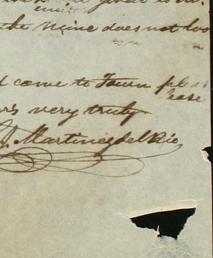 the mine does not loo
come to Town please
very truly
J. Martinez del Rio